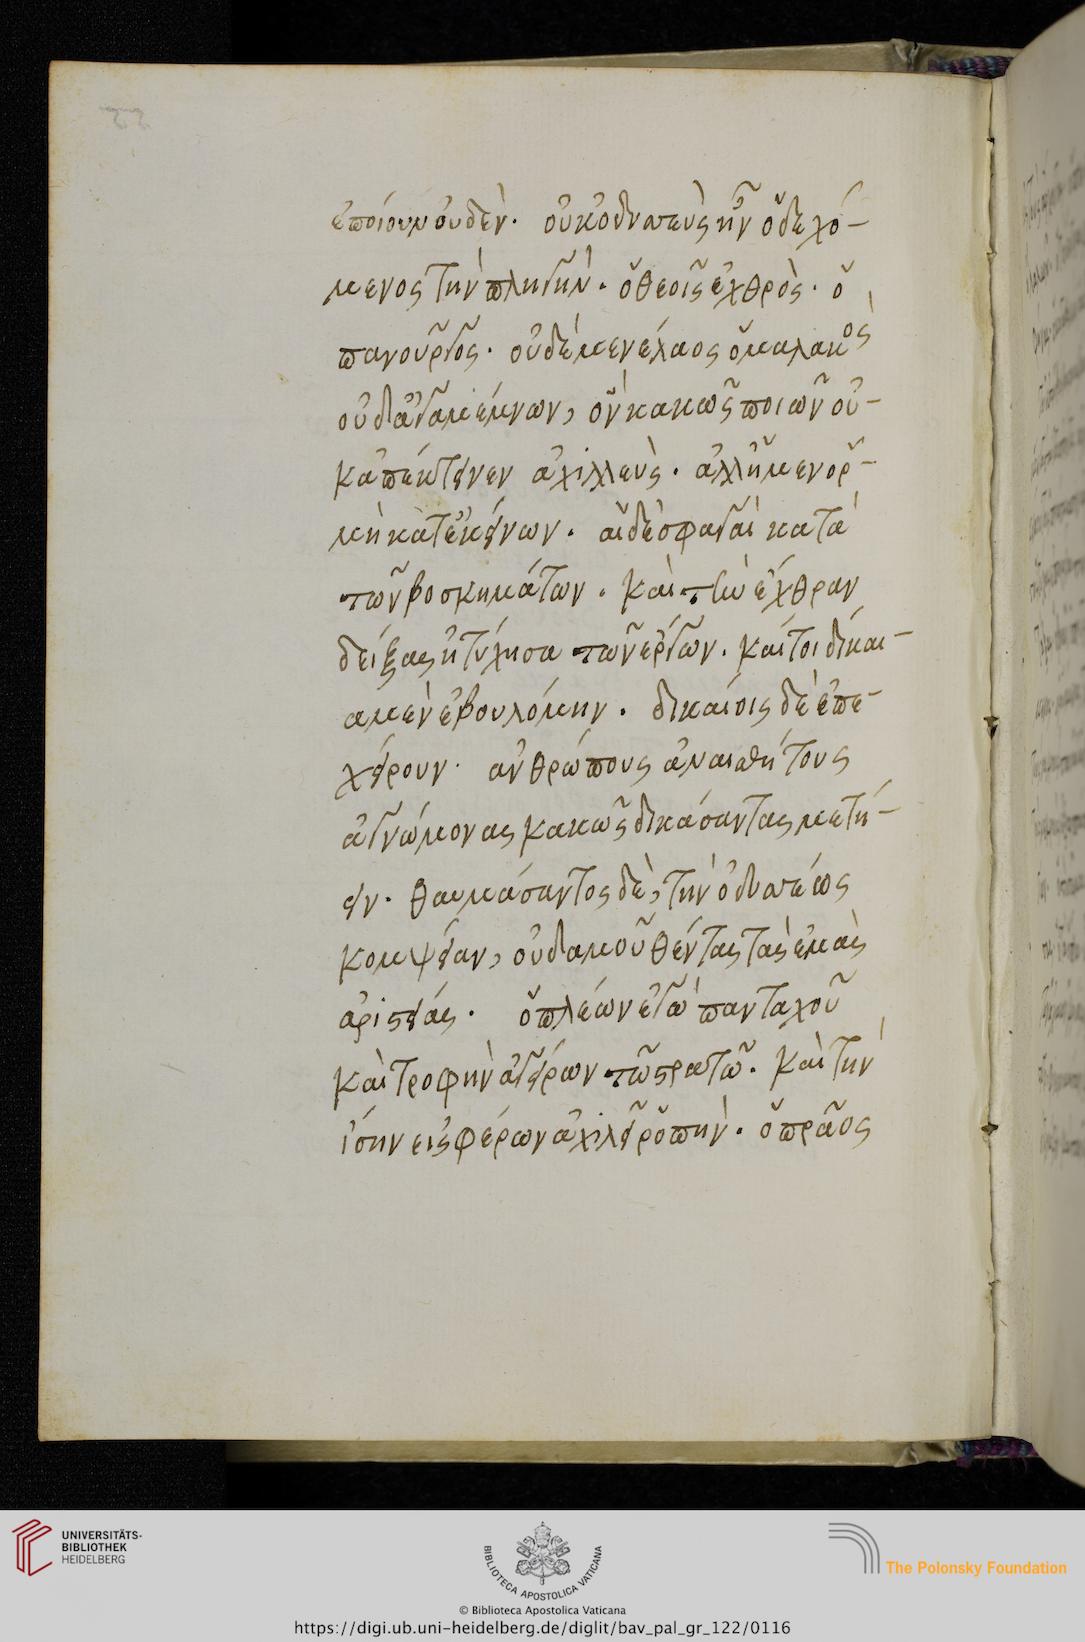 ἐποίουν οὐδέν. οὐκ ὀδυσσεὺς ἦν ὁ δεχό-
μενος τὴν πληγήν. ὁ θεοῖς ἐχθρὸς. ὁ
πανοῦργος. οὐδὲ μενέλαος ὁ μαλακὸς
οὐδ ἀγαμέμνων, ὃν κακῶς ποιῶν οὐ-
κ ἀπέκτεινεν ἀχιλλεύς. ἀλλ ἦ μεν ὁρ-
μὴ κατ ἐκείνων. αἱ δὲ σφαγαὶ κατὰ
τῶν βοσκημάτων. καὶ τὴν ἔχθραν
δείξας ἠτύχησα τῶν ἔργων. καίτοι δίκαι-
α μὲν ἐβουλόμην. δικαίοις δὲ ἐπε-
χείρουν. ἀνθρώπους ἀναισθήτους
ἀγνώμονας κακῶς δικάσαντας μετῄ-
ειν. θαυμάσαντος δὲ, τὴν ὀδυσσέως
κομψείαν, οὐδαμοῦ θέντας τὰς ἐμὰς
ἀριστείας. ὁ πλέων ἐγὼ πανταχοῦ
καὶ τροφὴν ἀγείρων τῷ στρατῷ. καὶ τὴν
ἴσην εἰσφέρων ἀχιλεῖ ῥοπήν. ὁ πρᾶος
UNIVERSITÄTS-
BIBLIOTHEK
HEIDELBERG
BIBLIOTECA APOSTOLICA VATICANA
The Polonsky Foundation
© Biblioteca Apostolica Vaticana
https://digi.ub.uni-heidelberg.de/diglit/bav_pal_gr_122/0116